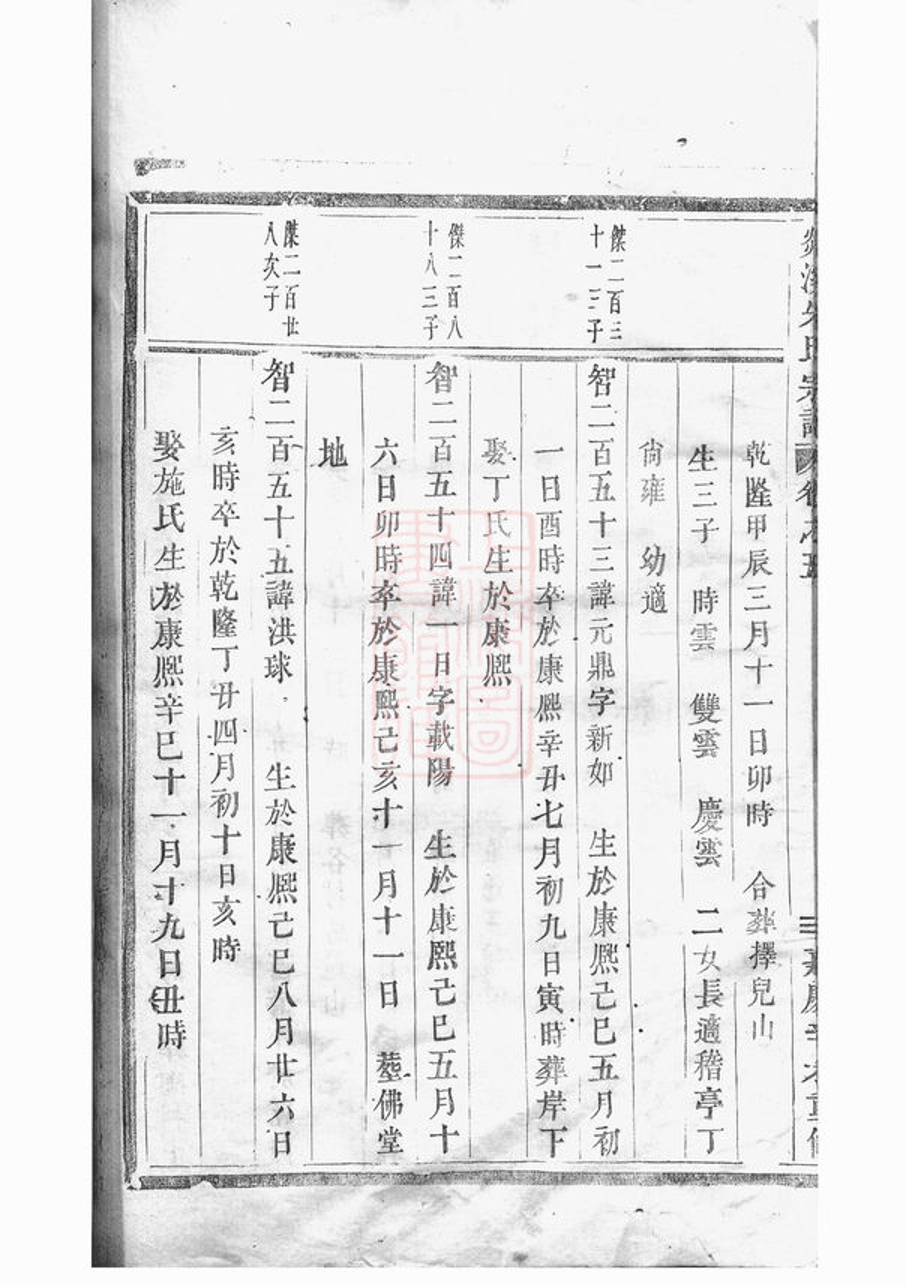 宗譜
卷之五
三
乾隆甲辰三月十一日卯時　合葬擇兒山
生三子　時雲　雙雲　慶雲　二女長適稽亭丁
尙雍　幼適
傑二百三
十一三子
智二百五十三諱元鼎字新如　生於康熙己巳五月初
一日酉時卒於康熙辛丑七月初九日寅時葬岸下
娶丁氏生於康熙
傑二百八
十八三子
智二百五十四諱一日字載陽　生於康熙己巳五月十
六日卯時卒於康熙己亥十一月十一日　塟佛堂
地
傑二百廿
八次子
智二百五十五諱洪球　生於康熙己巳八月廿六日
亥時卒於乾隆丁丑四月初十日亥時
娶施氏生於康熙辛巳十一月十九日丑時